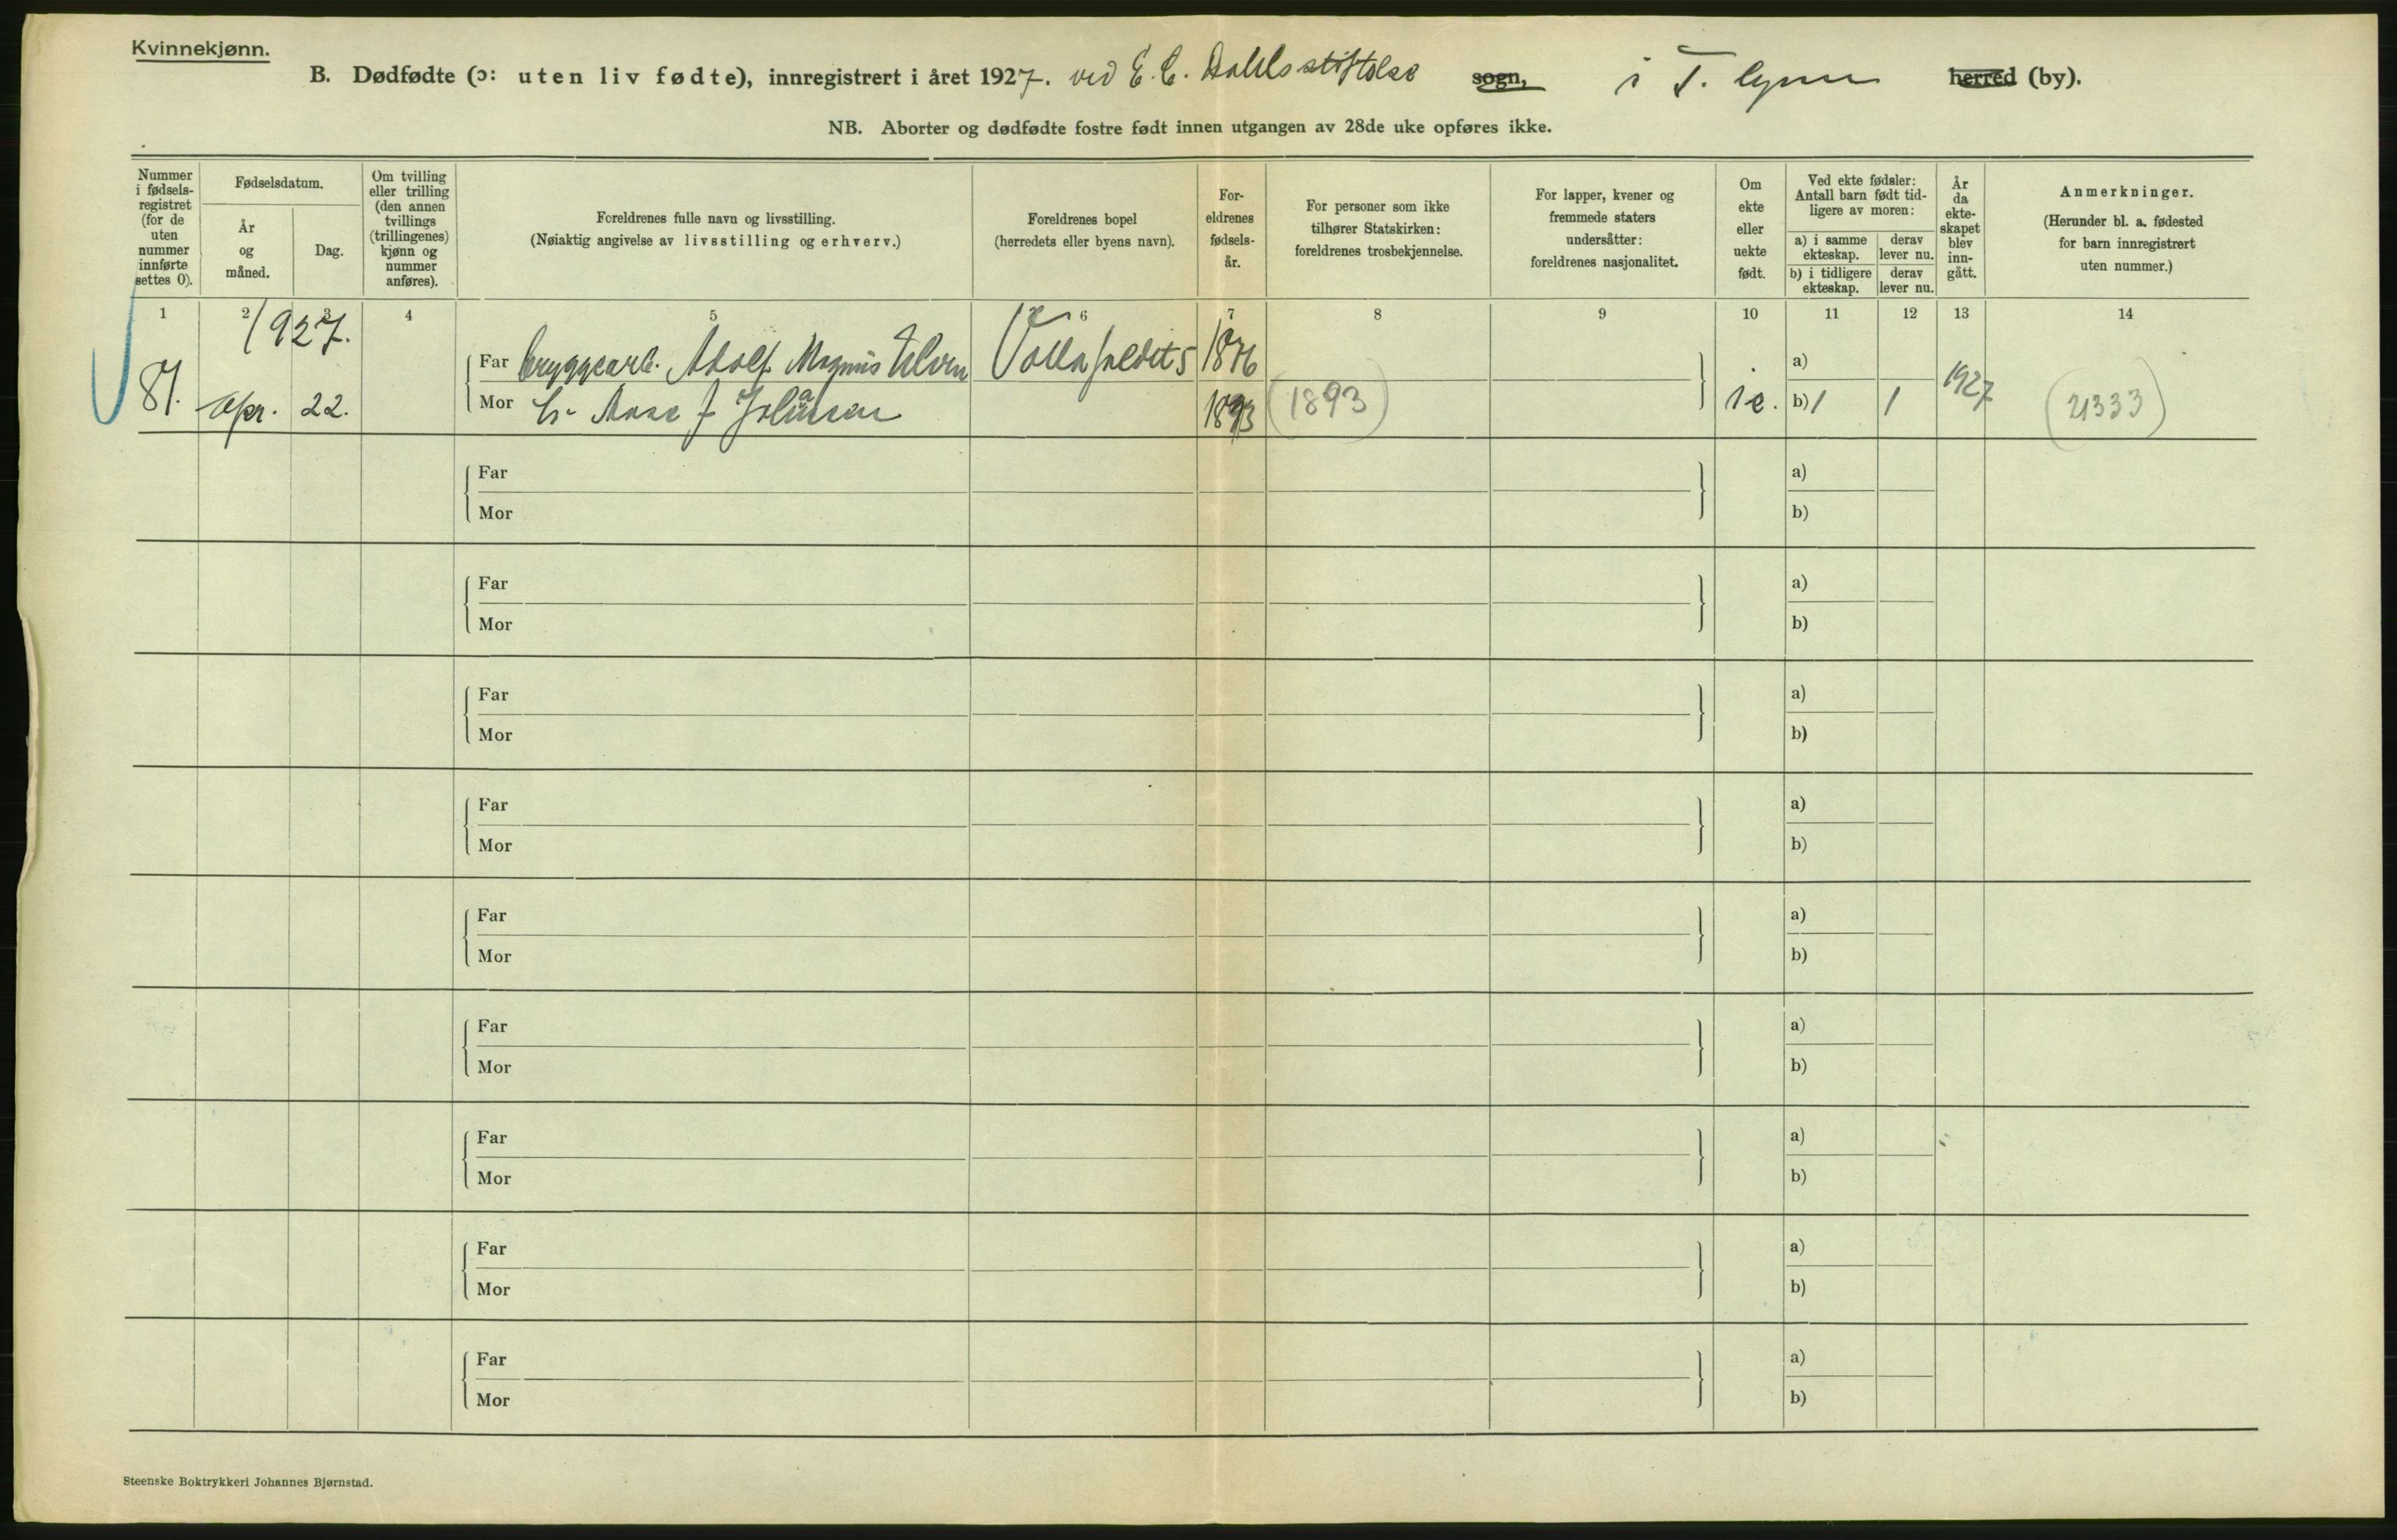 Kvinnekjønn.
B. Dødfødte (ɔ: uten liv fødte), innregistrert i året 1927. ved E. C. Dahls stiftelse sogn, i T. hjem herred (by).
NB. Aborter og dødfødte fostre født innen utgangen av 28de uke opføres ikke.
Nummer i fødsels-registret (for de uten nummer innførte settes 0).
Fødselsdatum.
År og måned.
Dag.
Om tvilling eller trilling (den annen tvillings (trillingenes) kjønn og nummer anføres).
Foreldrenes fulle navn og livsstilling.
(Nøiaktig angivelse av livsstilling og erhverv.)
Foreldrenes bopel
(herredets eller byens navn).
For-eldrenes fødsels-år.
For personer som ikke tilhører Statskirken: foreldrenes trosbekjennelse.
For lapper, kvener og fremmede staters undersåtter: foreldrenes nasjonalitet.
Om ekte eller uekte født.
Ved ekte fødsler: Antall barn født tid-ligere av moren:
a) i samme ekteskap.
derav lever nu.
b) i tidligere ekteskap.
derav lever nu.
År da ekte-skapet blev inn-gått.
Anmerkninger.
(Herunder bl. a. fødested for barn innregistrert uten nummer.)
1 2 3 4 5 6 7 8 9 10 11 12 13 14
1927.
Far bryggearb. Adolf Magnus 1876 a)
81. Apr. 22. Mor 1893 (1893) b) 1 1 1927 (21333)
Far a)
Mor b)
Far a)
Mor b)
Far a)
Mor b)
Far a)
Mor b)
Far a)
Mor b)
Far a)
Mor b)
Far a)
Mor b)
Far a)
Mor b)
Far a)
Mor b)
Steenske Boktrykkeri Johannes Bjørnstad.